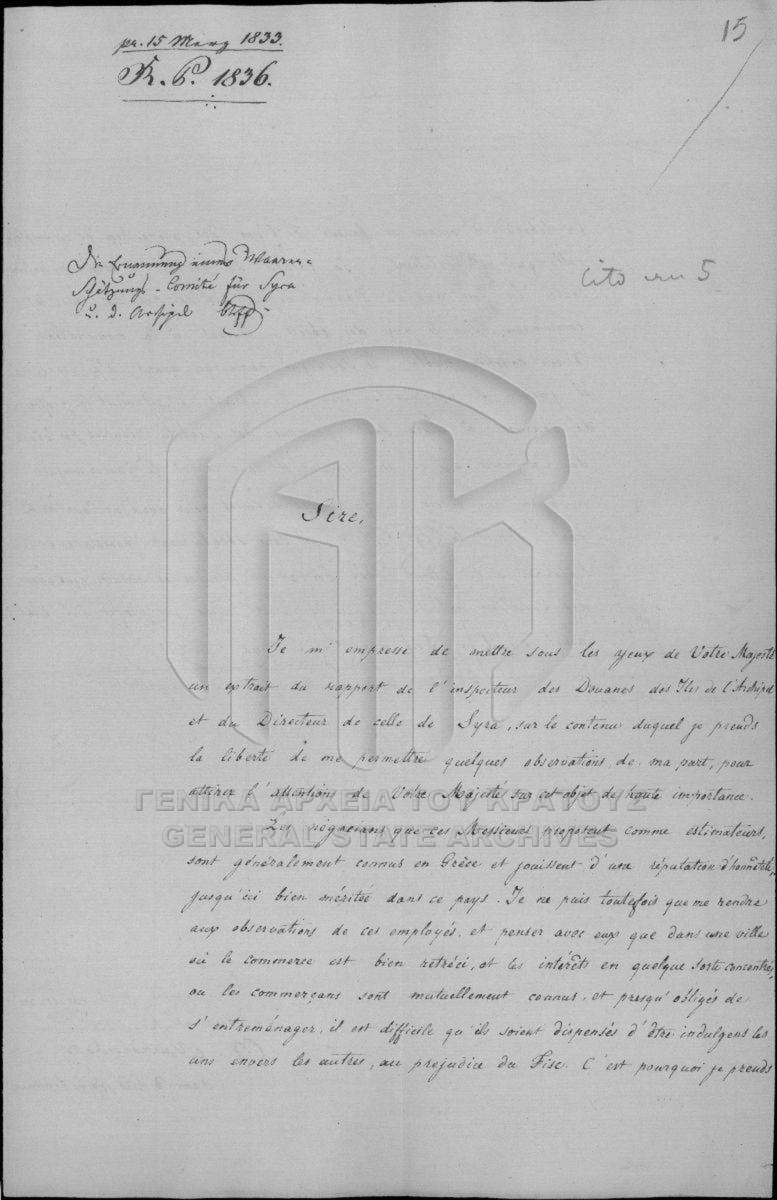 15
pr. 15 März 1833.
K. P. 1836.
Die Ernennung eines Waaren-
Schätzungs-Comité für Syra
u. d. Archipel
Cito 5
Sire,
Je m'empresse de mettre sous les yeux de Votre Majesté
un extrait du rapport de l'inspecteur des Douanes des Iles de l'Archipel
et du Directeur de celle de Syra, sur le contenu duquel je prends
la liberté de me permettre quelques observations, de ma part, pour
attirer l'attentions de Votre Majestés sur cet objet de haute importance.
Les négocians que ces Messieurs proposent comme estimateurs,
sont généralement connus en Grèce et jouissent d'une réputation d'honnêteté,
jusqu'ici bien méritée dans ce pays. Je ne puis toutefois que me rendre
aux observations de ces employés, et penser avec eux que dans une ville
où le commerce est bien retréci, et les intérêts en quelque sorte concentrés,
ou les commerçans sont mutuellement connus, et presqu'obligés de
s'entreménager, il est difficile qu'ils soient dispensés d'être indulgens les
uns envers les autres, au prejudice du Fisc. C'est pourquoi je prends
ΓΕΝΙΚΑ ΑΡΧΕΙΑ ΤΟΥ ΚΡΑΤΟΥΣ
GENERAL STATE ARCHIVES